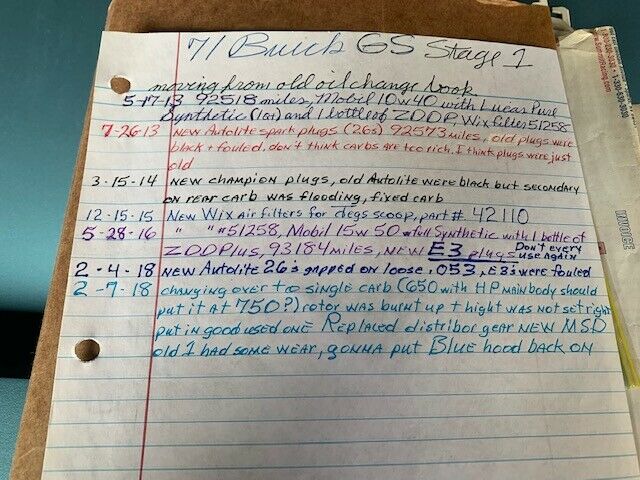 71 Buick GS Stage 1
moving from old oil change book
5-17-13 92518 miles, Mobil 10w40 with Lucas Pure
Synthetic (1qt) and 1 bottle of ZDDP, Wix filter 51258
7-26-13 NEW Autolite spark plugs (26s) 92573 miles, old plugs were
black + fouled. don't think carbs are too rich. I think plugs were just
old
3-15-14 NEW champion plugs, old Autolite were black but secondary
on rear carb was flooding, fixed carb
12-15-15 New Wix air filters for degs scoop, part# 42110
5-28-16 " " "#51258, Mobil 15w50 full Synthetic with 1 bottle of
ZDDPlus, 93184 miles, NEW E3 plugs Don't every
use again
2-4-18 NEW Autolite 26's gapped on loose .053, E3's were fouled
2-7-18 changing over to single carb (650 with HP main body should
put it at 750?) rotor was burnt up + hight was not set right
put in good used one Replaced distribor gear NEW MSD
old 1 had some wear, gonna put Blue hood back on
INVOICE